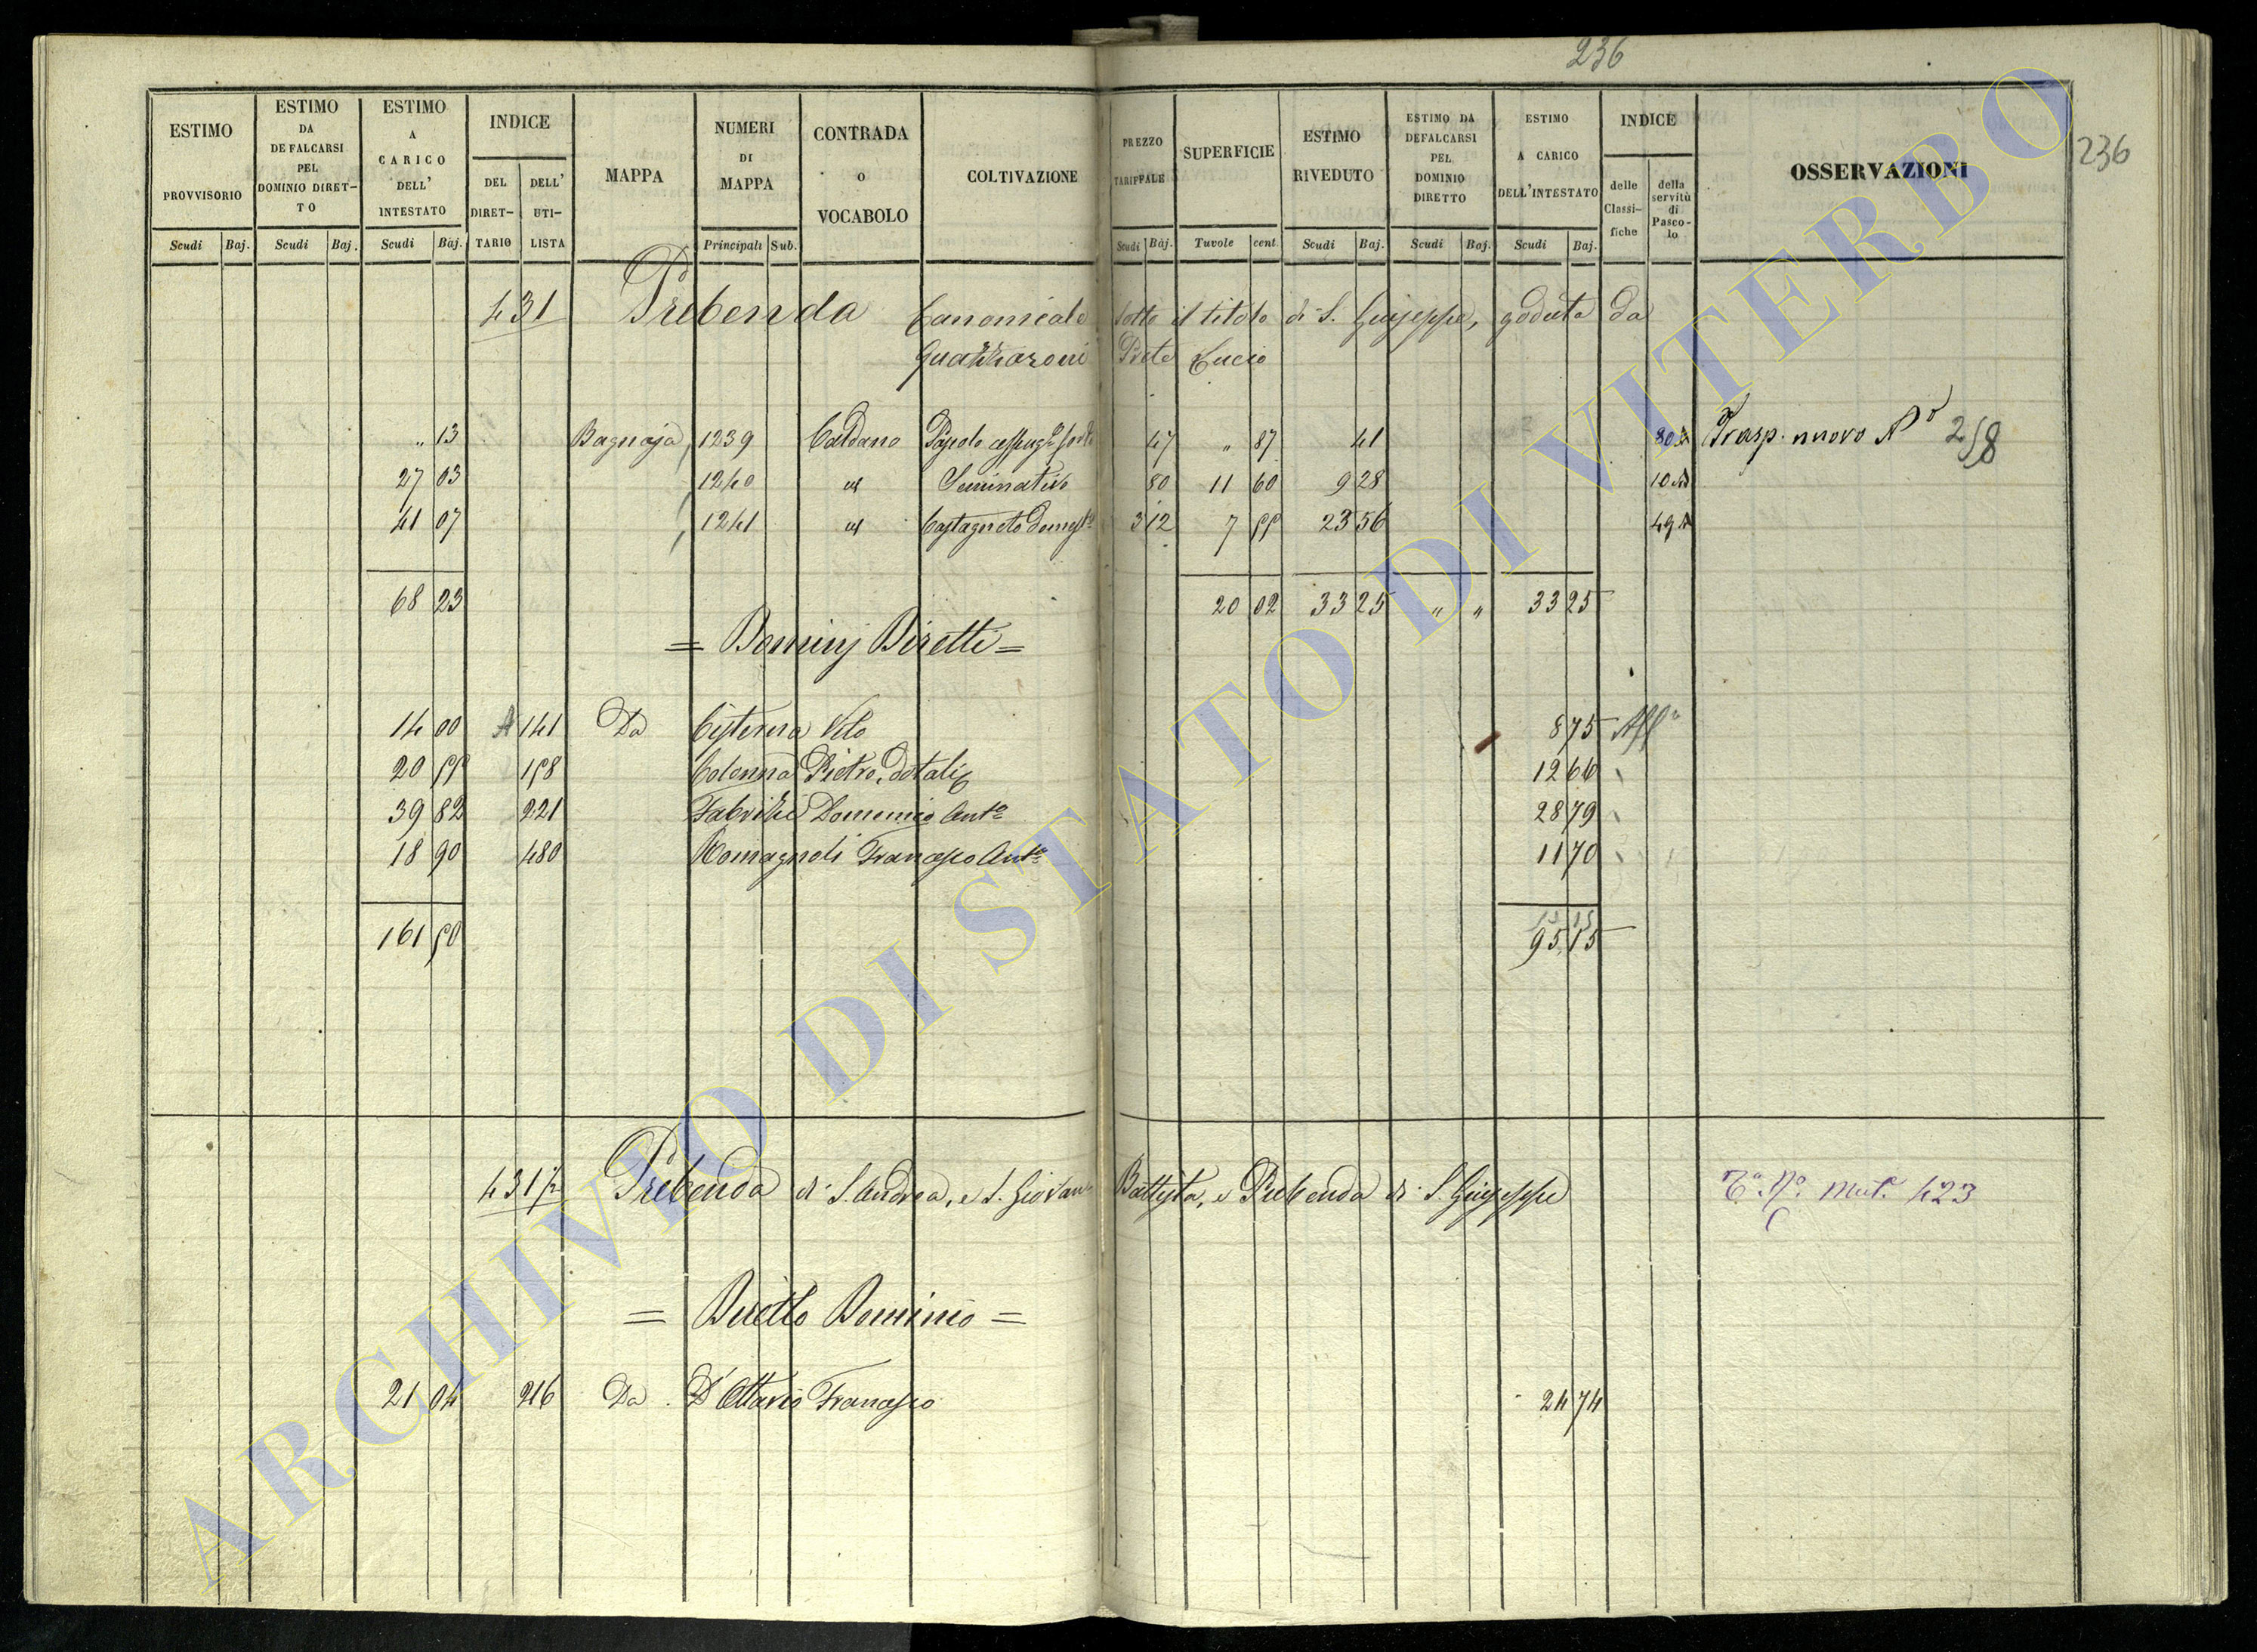 236
236
ESTIMO PROVVISORIO Scudi Baj.
ESTIMO DA DEFALCARSI PEL DOMINIO DIRET-TO Scudi Baj.
ESTIMO A CARICO DELL' INTESTATO Scudi Baj.
INDICE DEL DIRET-TARIO DELL' UTI-LISTA
MAPPA
NUMERI DI MAPPA Principali Sub.
CONTRADA o VOCABOLO
COLTIVAZIONE
PREZZO TARIFFALE Scudi Baj.
SUPERFICIE Tavole cent.
ESTIMO RIVEDUTO Scudi Baj.
ESTIMO DA DEFALCARSI PEL DOMINIO DIRETTO Scudi Baj.
ESTIMO A CARICO DELL'INTESTATO Scudi Baj.
INDICE delle Classi-fiche della servitù di Pasco-lo
OSSERVAZIONI
431 Prebenda Canonicale sotto il titolo di S. Giuseppe, goduta da
Prete Lucio
" 13 Bagnaja 1239 Caldano 47 " 87 41 Trasp. nuovo N° 258
27 03 1240 id Seminativo 80 11 60 9 28 10
41 07 1241 id Castagneto 3 12 7 55 23 56 49
68 23 20 02 33 25 " " 33 25
= Dominj Diretti =
14 00 141 Da Cisterna Vito 8 75
20 55 158 Colonna Pietro, dotali 12 66
39 82 221 Fabrizi Domenico Ant° 28 79
18 90 480 Romagnoli Francesco Ant° 11 70
161 50 95 15
431/2 Prebenda di S. Andrea, e S. Giovan Battista, e Prebenda di S. Giuseppe 423
= Diretto Dominio =
21 04 216 Da D'Ottavio Francesco 24 74
ARCHIVIO DI STATO DI VITERBO